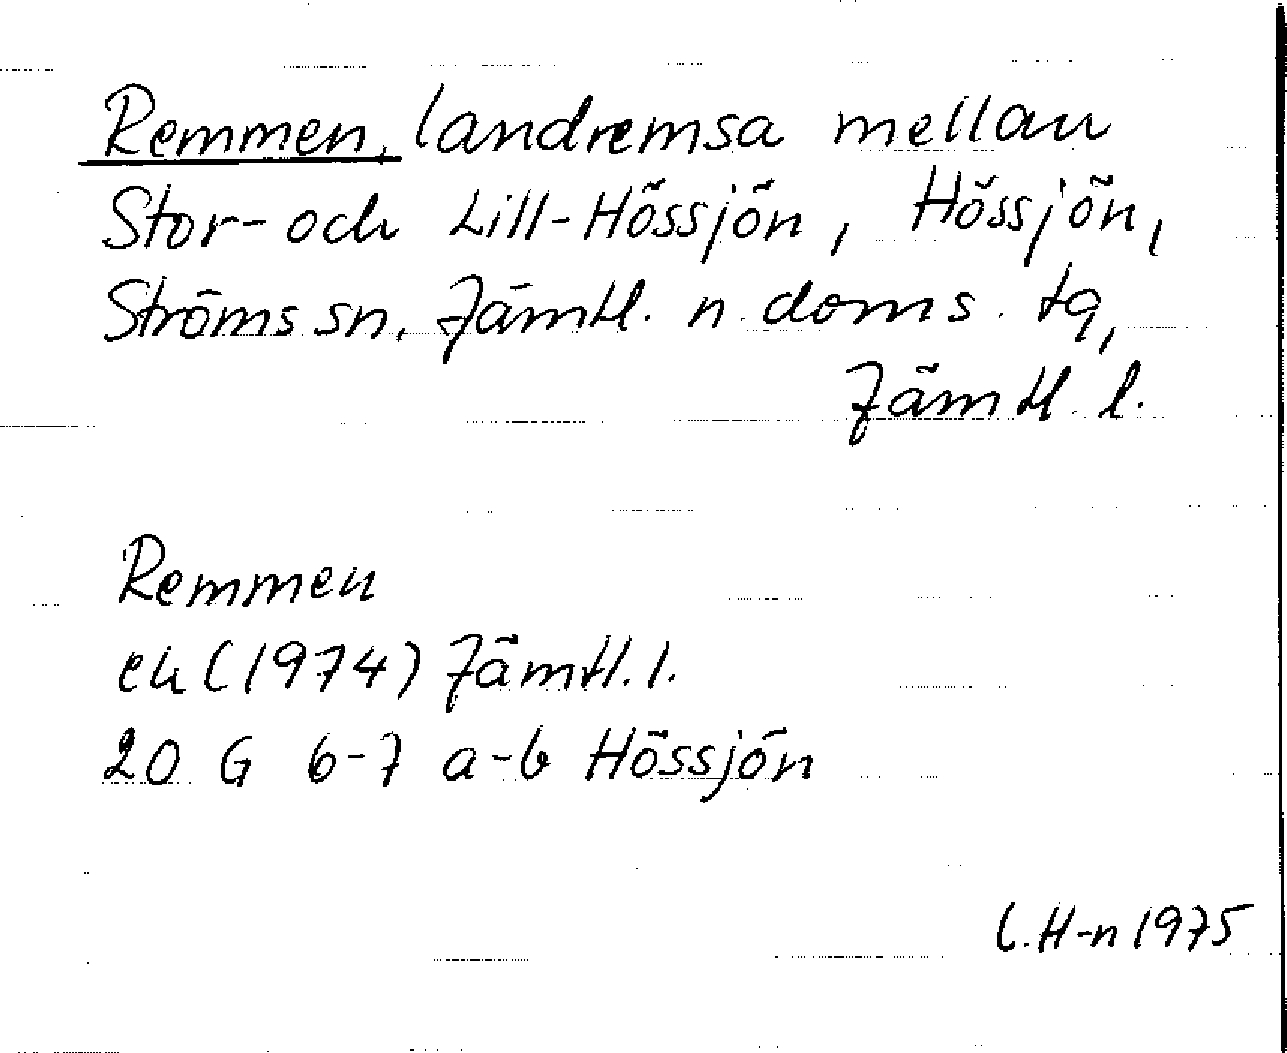 Remmen, landremsa mellan
Stor- och Lill-Hössjön, Hössjön,
Ströms sn, Jämtl. n. doms. tg,
Jämtl. l.
Remmen
ek (1974) Jämtl. l.
20 G 6-7 a-b Hössjön
L.H-n 1975